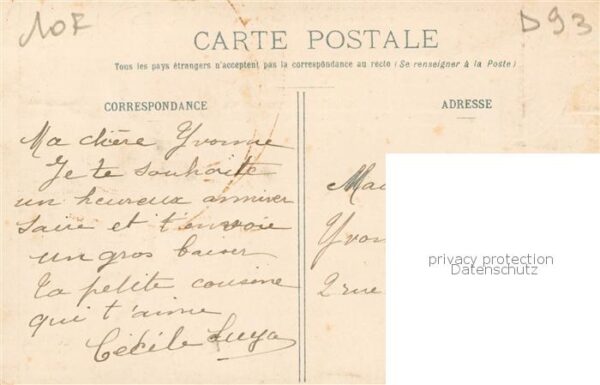 10F
D93
CARTE POSTALE
Tous les pays étrangers n'acceptent pas la correspondance au recto (Se renseigner à la Poste)
CORRESPONDANCE
Ma chère Yvonne
Je te souhaite
un heureux anniver
saire et t'envoie
un gros baiser
Ta petite cousine
qui t'aime
Cécile
ADRESSE
Yvon
2 rue
privacy protection
Datenschutz